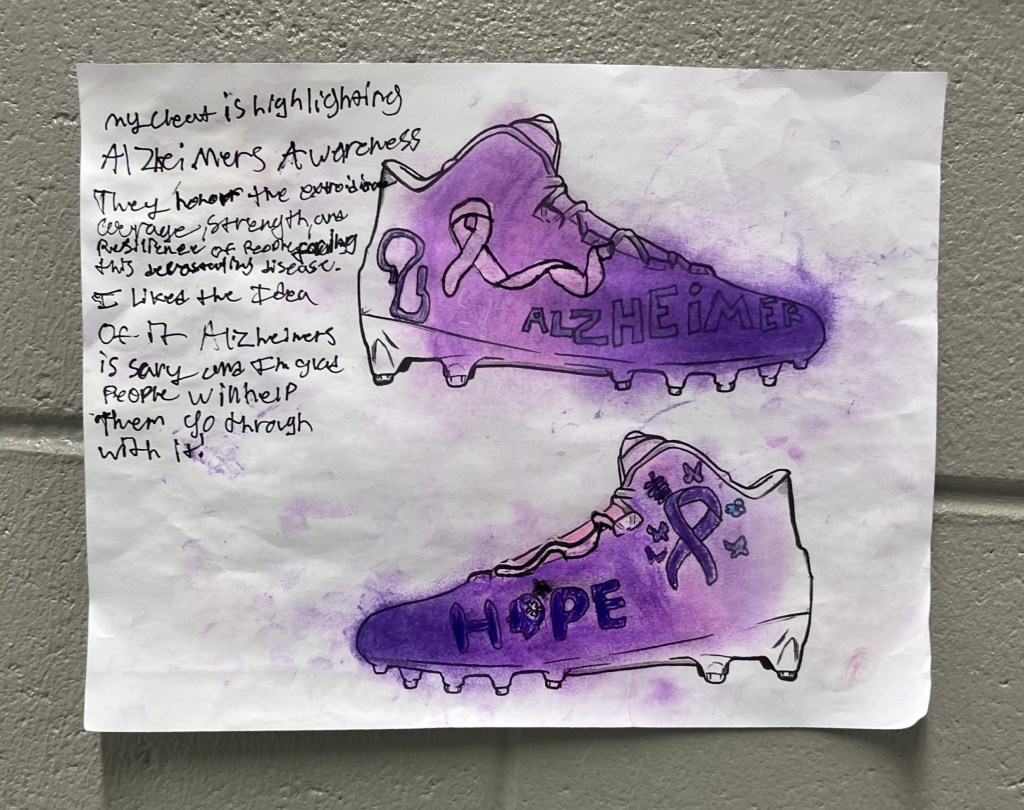 my cleat is highlighting
Alzheimers Awareness
They honor the
courage, strength, and
Resilience of People facing
this devastating disease.
I Liked the Idea
Of it Alzheimers
is sary and I'm glad
People will help
them go through
with it!
ALZHEiMER
HOPE